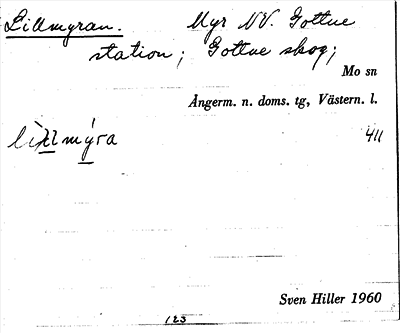 Lillmyran. Myr NV. Gottne
station; Gottne skog;
Mo sn
Ångerm. n. doms. tg, Västern. l.
lìllmýra 411
Sven Hiller 1960
123